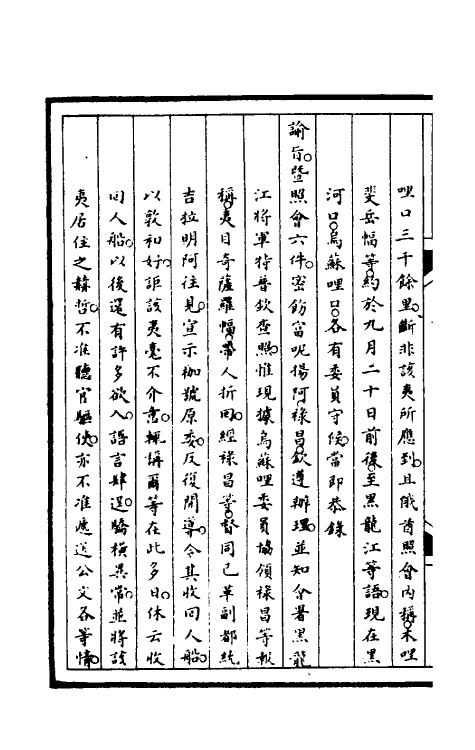 哩口三千餘里。斷非該夷所應到。且俄酋照會內稱。木哩
斐岳幅等。約於九月二十日前後。至黑龍江等語。現在黑
河口。烏蘇哩口。各有委員守候。當即恭錄
諭旨。暨照會六件。密飭富呢揚阿祿昌。欽遵辦理。並知會署黑龍
江將軍特普欽查照。惟現據烏蘇哩委員協領祿昌等報
稱。夷目奇薩羅幅。帶人折回。經祿昌等。督同已革副都統
吉拉明阿往見。宣示枷號原委。反復開導。令其收回人船。
以敦和好。詎該夷毫不介意。輒稱爾等在此多日。休云收
回人船。以後還有許多欲入。語言肆逞。驕橫異常。並將該
夷居住之赫哲。不准聽官驅使。亦不准遞送公文各等情。